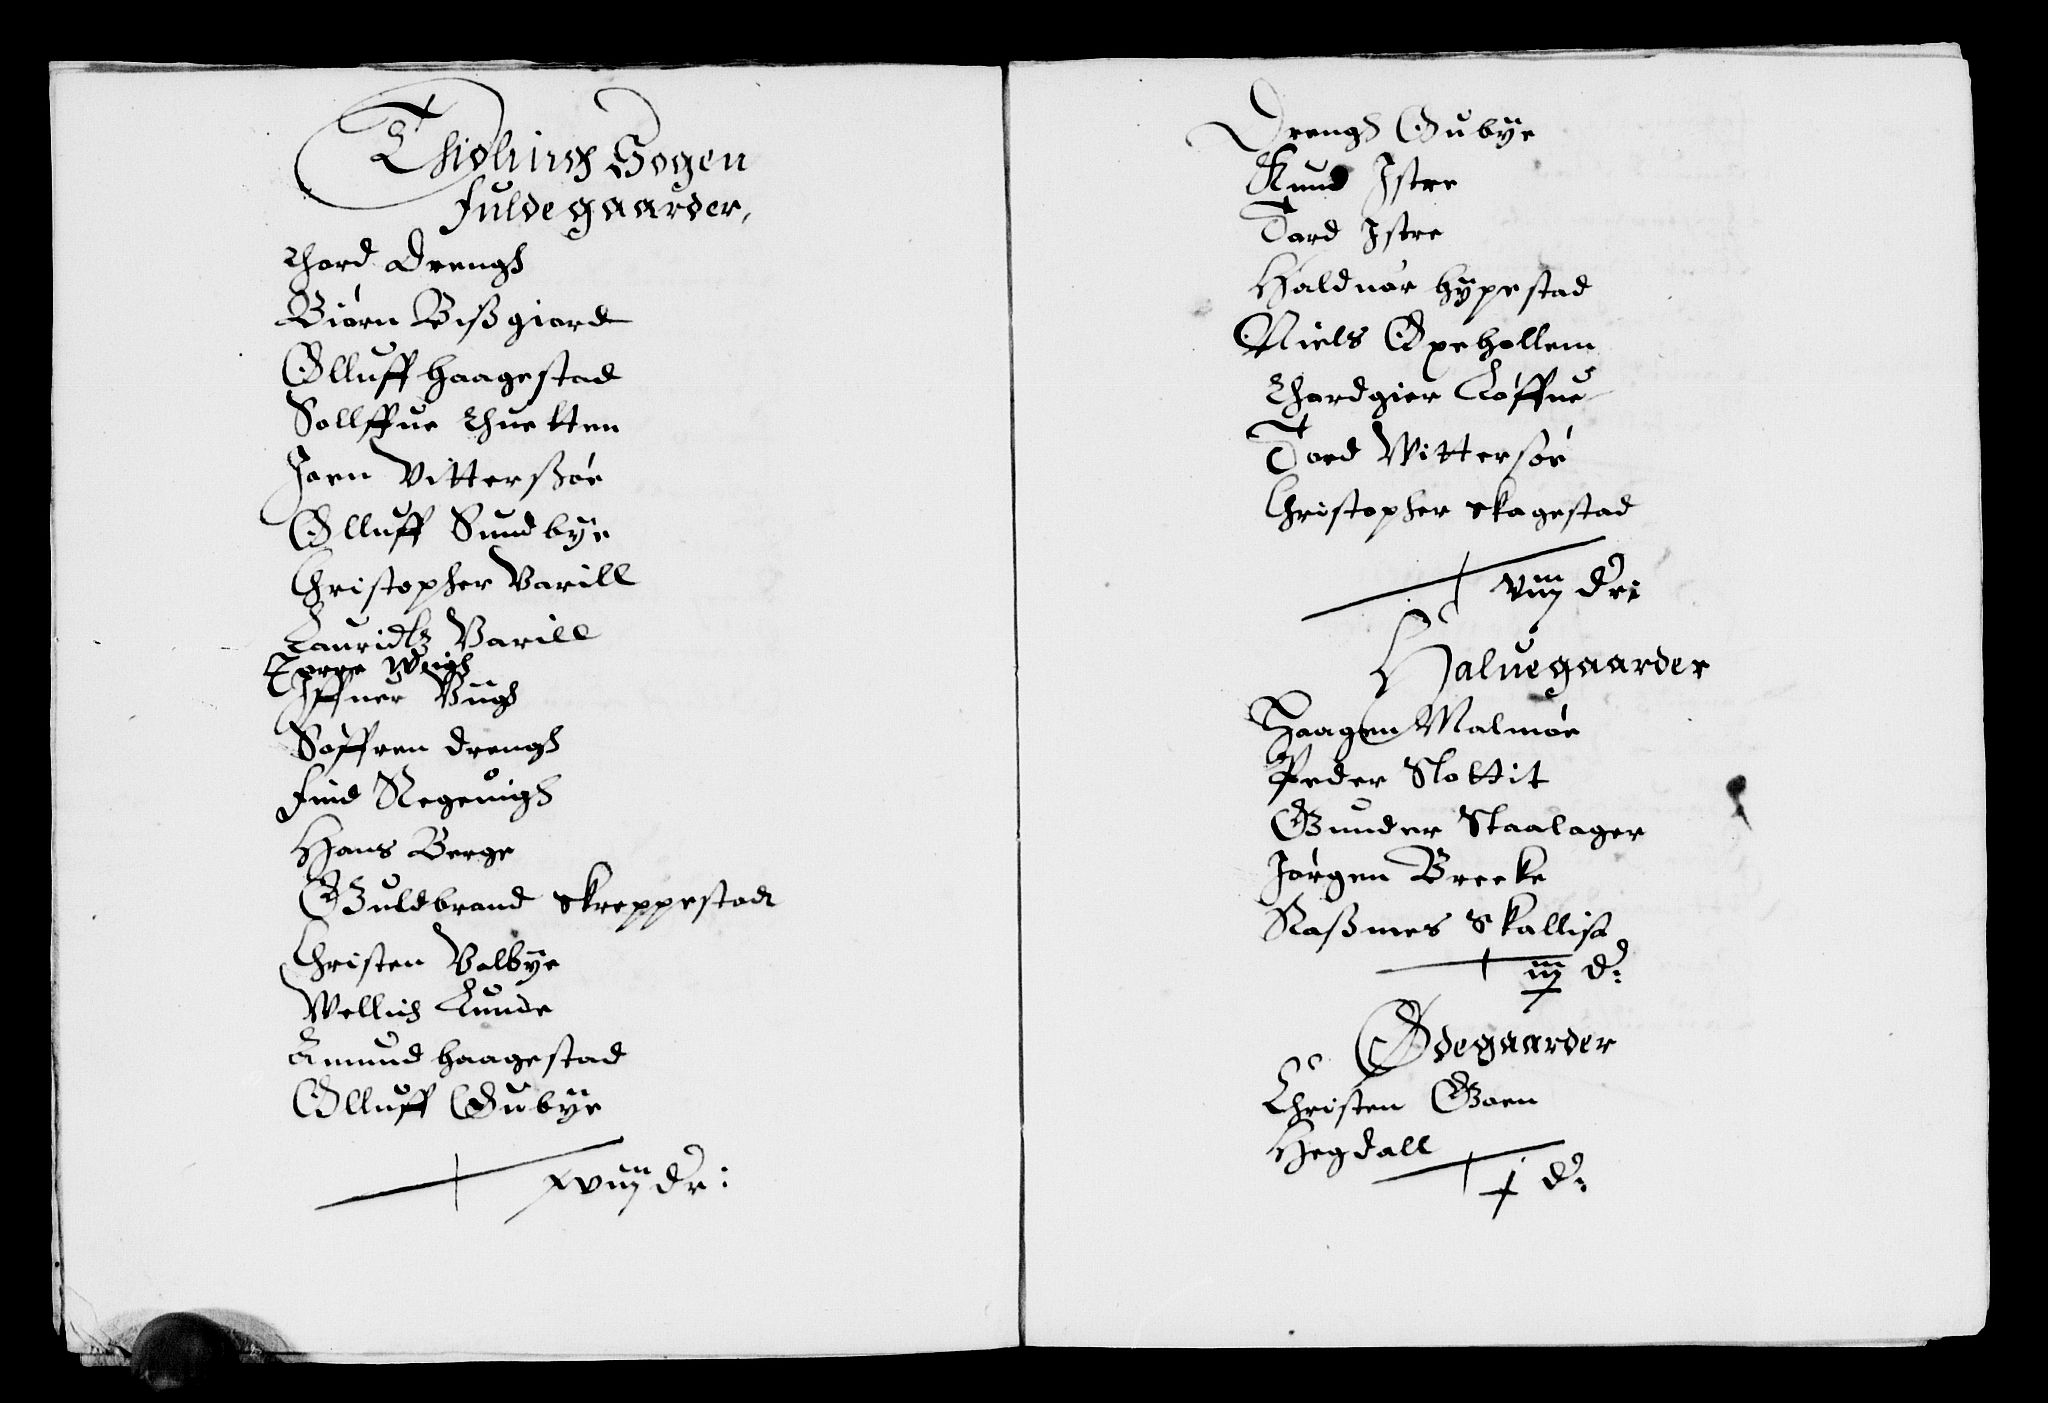 Thiølings Sogen
fulde gaarder,
Thord Drengh
Biørn Bißgiord
Olluff Haagestad
Sollffue Thuetten
Joen Vitterßøe
Olluff Sundbÿe
Christopher Varill
Lauridtz Varill
Torre Wiigh
Iffuer Viigh
Søffren drengh
find Regeuigh
Hans Berge
Guldbrand Skreppestad
Christen Valbÿe
Wellich Lunde
Amund Haagestad
Olluff Gubÿe
xviij dr:
Drengh Gubÿe
Knud Istre
Tord Istre
Halduor hÿpestad
Niels Oxehollem
Thordgier Løffue
Tord Wittersøe
Christopher Skagestad
viij dr:
Halue gaarder
Haagen Malmøe
Peder Slottit
Gunder Staalager
Jørgen Brecke
Raßmes Skallis
iij d:
Ødegaarder
Christen Goen
Hegdall
j d: